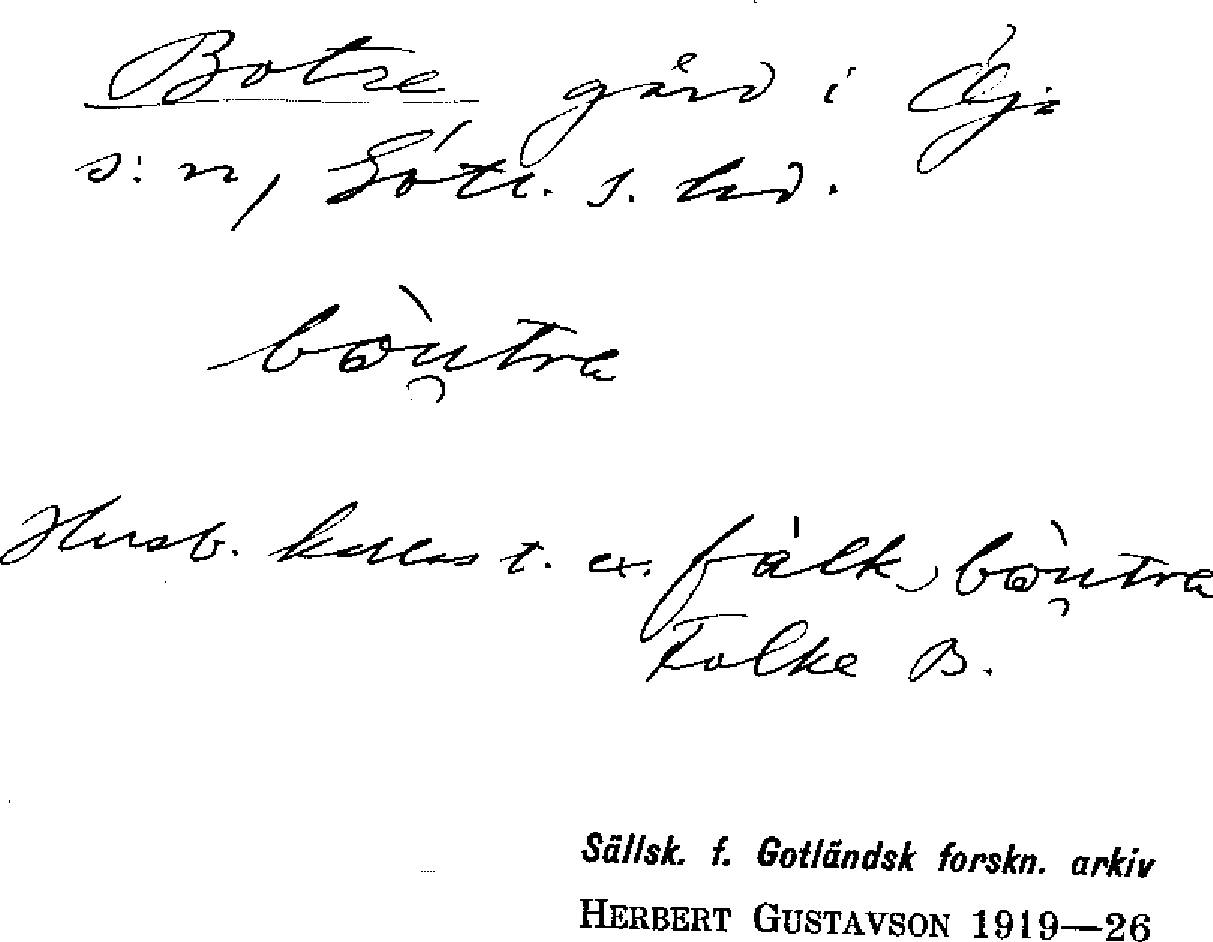 Botre gård i
s:n, Gotl. s. hd.
bòu̯tra
Husb. kallas t. ex. fàlk bòu̯tra
Folke B.
Sällsk. f. Gotländsk forskn. arkiv
HERBERT GUSTAVSON 1919—26